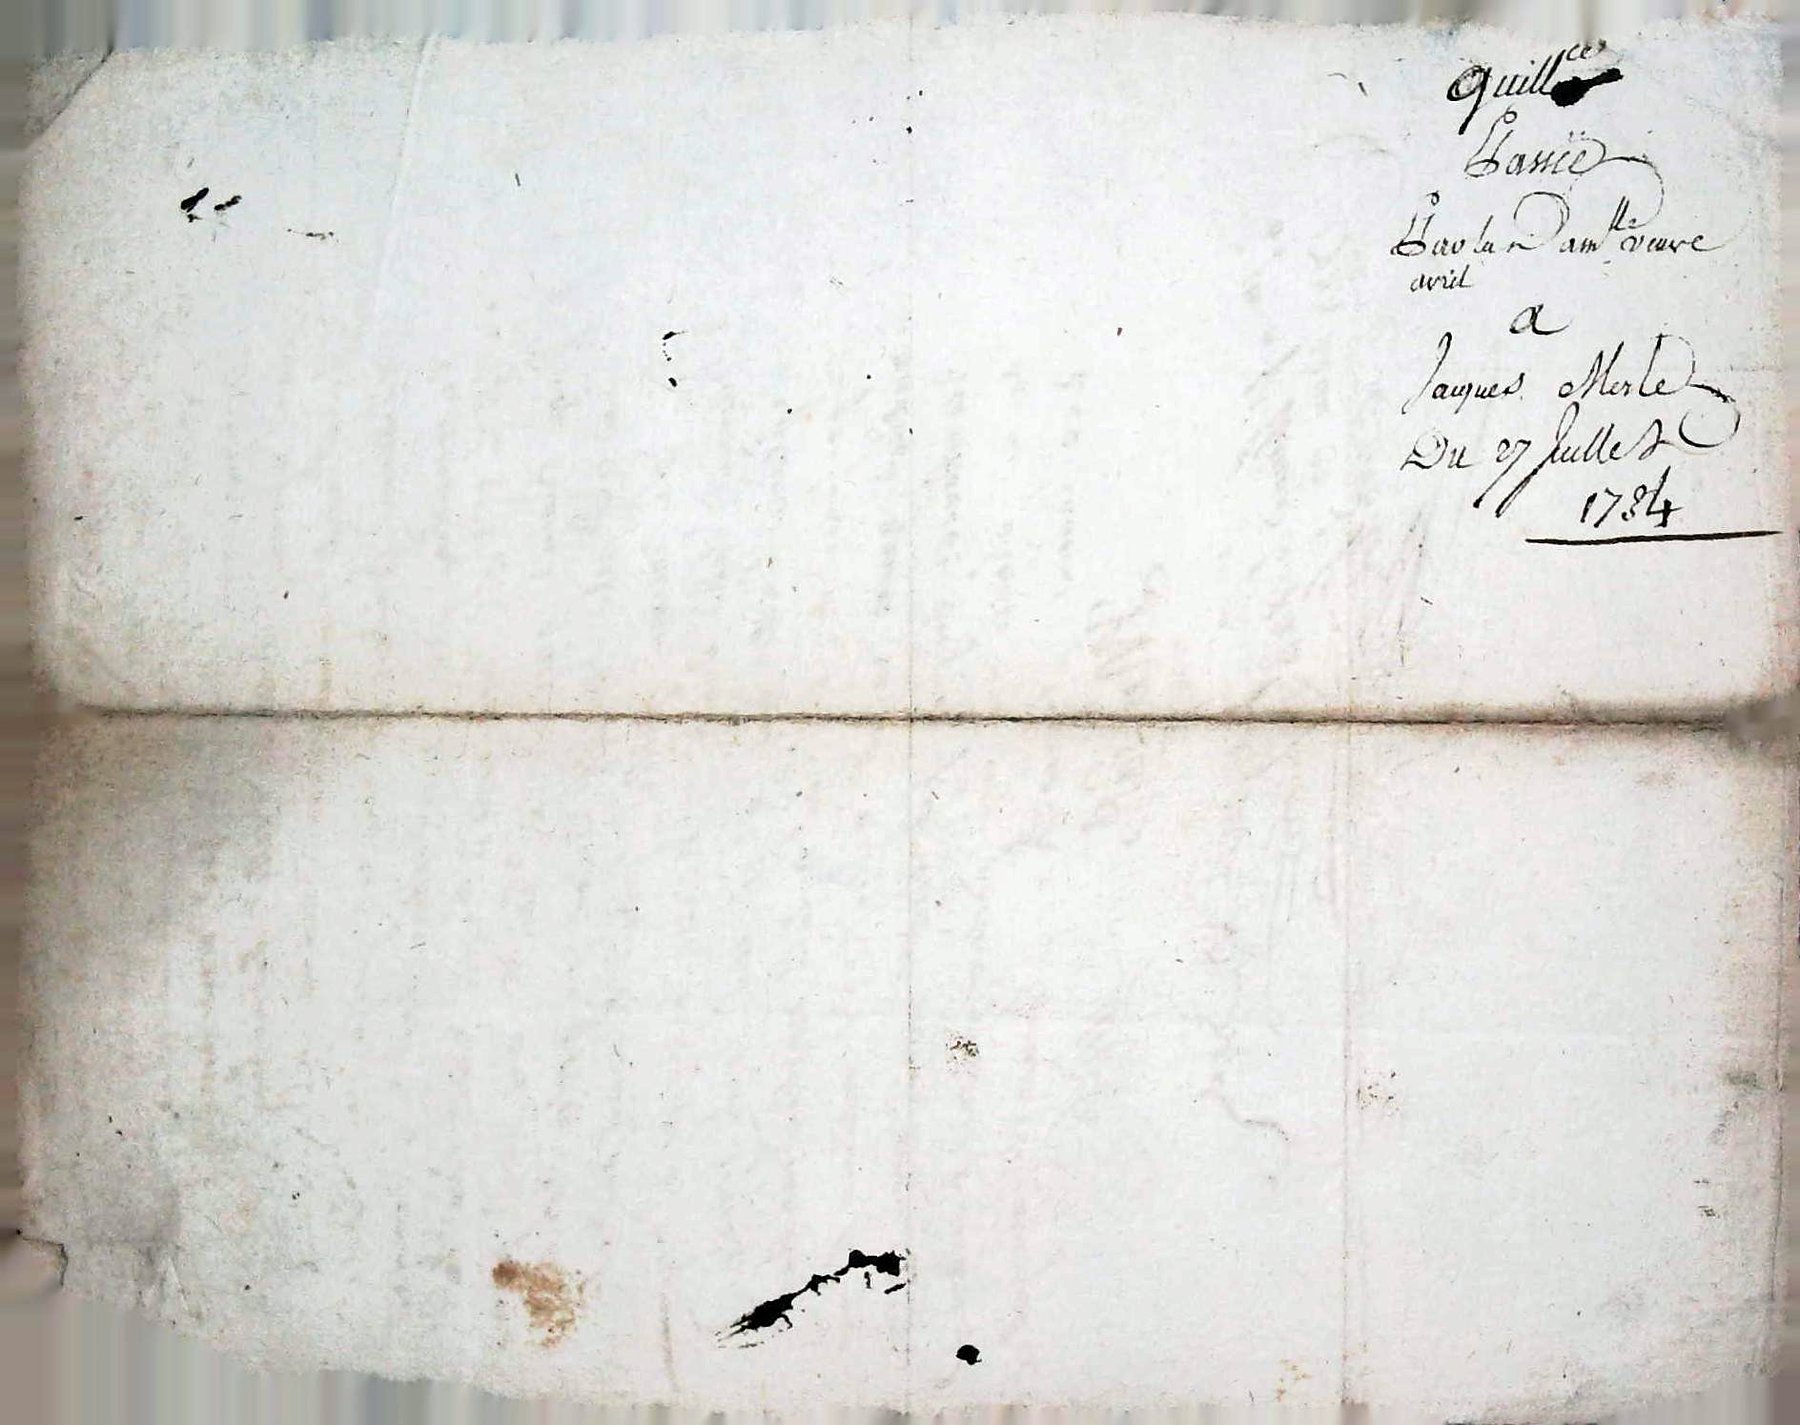 Quill^ce
Passée
Par la Dam^lle veuve
avril
a
Jacques Merle
Du 27 Juillet
1784